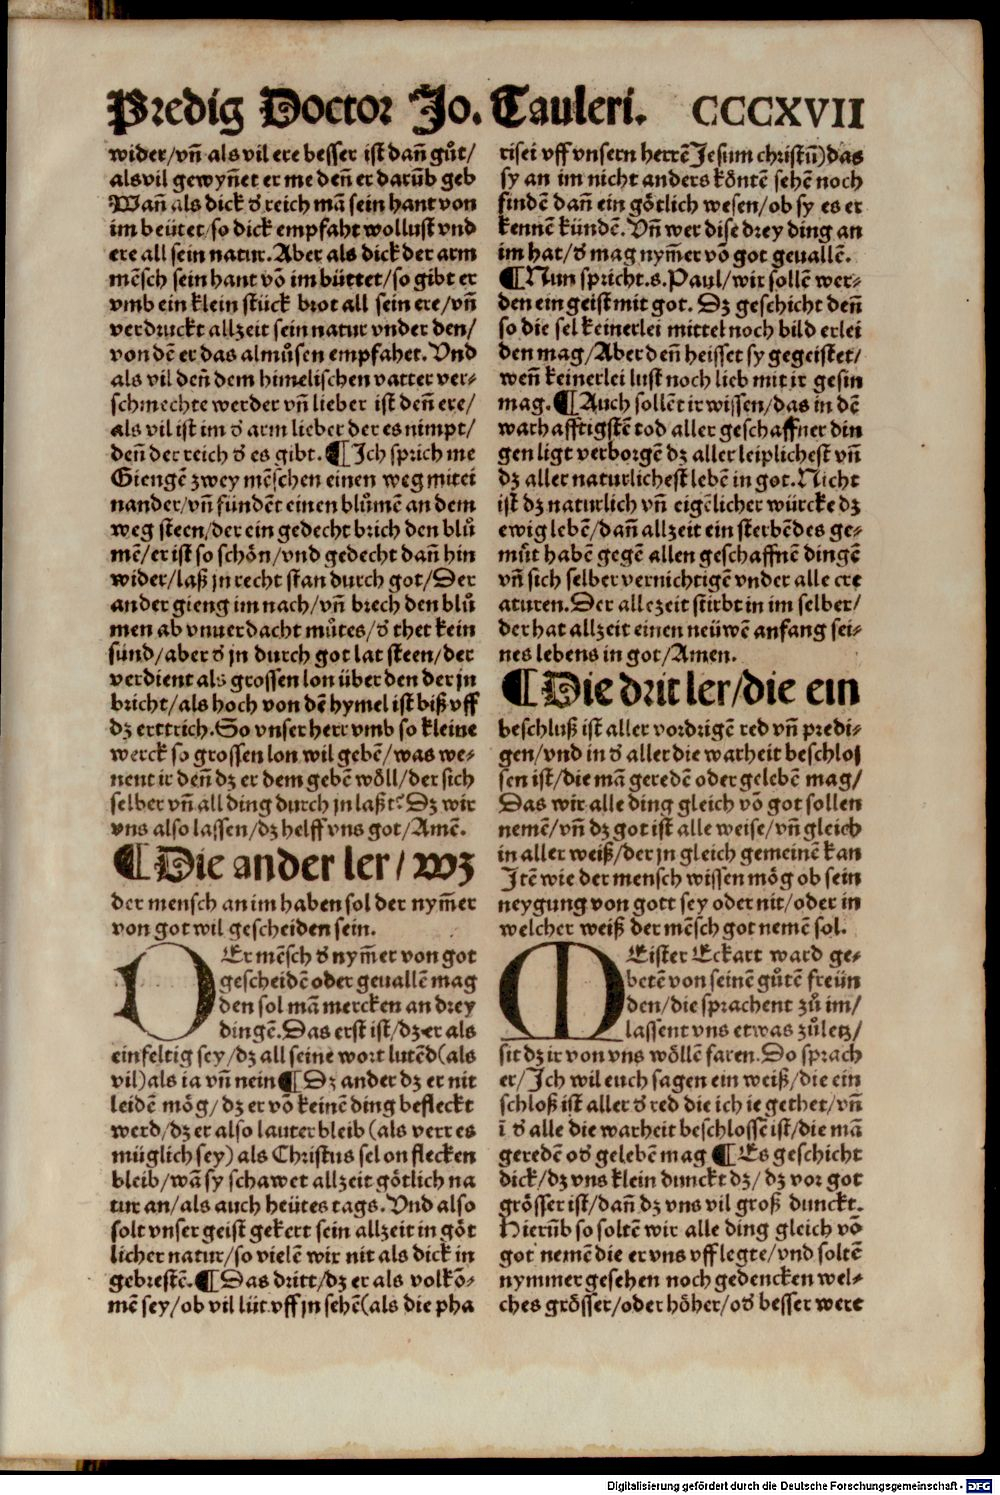 Predig Doctor Jo. Tauleri. CCCXVII
wider/vñ als vil ere besser ist dañ gůt/
als vil gewyñet er me deñ er darūb geb
Wañ als dick ď reich mā sein hant von
im beütet/so dick empfaht wollust vnd
ere all sein natur. Aber als dick der arm
mēsch sein hant vō im büttet/so gibt er
vmb ein klein stück brot all sein ere/vñ
verdruckt allzeit sein natur vnder den/
von dē er das almůsen empfahet. Vnd
als vil deñ dem himelischen vatter ver⸗
schmechte werder vñ lieber ist deñ ere/
als vil ist im ď arm lieber der es nimpt/
deñ der reich ď es gibt. ¶ Ich sprich me
Giengē zwey mēschen einen weg mitei
nander/vñ fündēt einen blůmē an dem
weg steen/der ein gedecht brich den blů
mē/er ist so schön/vnd gedecht dañ hin
wider/laß jn recht stan durch got/Der
ander gieng im nach/vñ brech den blů
men ab vnuerdacht můtes/ď thet kein
sünd/aber ď jn durch got lat steen/der
verdient als grossen lon über den der jn
bricht/als hoch von dē hymel ist biß vff
dz erttrich. So vnser herr vmb so kleine
werck so grossen lon wil gebē/was we⸗
nent ir deñ dz er dem gebē wöll/der sich
selber vñ all ding durch jn laßt? Dz wir
vns also lassen/dz helff vns got/Amē.
¶ Die ander ler/ wz
der mensch an im haben sol der nym̄er
von got wil gescheiden sein.
DEr mēsch ď nym̄er von got
gescheidē oder geuallē mag
den sol mā mercken an drey
dingē. Das erst ist/dz er als
einfeltig sey/dz all seine wort lutēd (als
vil) als ia vñ nein ¶ Dz ander dz er nit
leidē mög/dz er vō keinē ding befleckt
werd/dz er also lauter bleib (als verr es
müglich sey) als Christus sel on flecken
bleib/wā sy schawet allzeit götlich na
tur an/als auch heütes tags. Vnd also
solt vnser geist gekert sein allzeit in göt
licher natur/so vielē wir nit als dick in
gebrestē. ¶ Das dritt/dz er als volkō⸗
mē sey/ob vil lüt vff jn sehē (als die pha
risei vff vnsern herrē Jesum christū) das
sy an im nicht anders köntē sehē noch
findē dañ ein götlich wesen/ob sy es er
kennē kündē. Vñ wer dise drey ding an
im hat/ď mag nym̄er vō got geuallē.
¶ Nun spricht .s. Paul/wir sollē wer⸗
den ein geist mit got. Dz geschicht deñ
so die sel keinerlei mittel noch bild erlei
den mag/Aber deñ heisset sy gegeistet/
weñ keinerlei lust noch lieb mit ir gesin
mag. ¶ Auch sollēt ir wissen/das in dē
warhafftigstē tod aller geschaffner din
gen ligt verborgē dz aller leiplichest vñ
dz aller naturlichest lebē in got. Nicht
ist dz naturlich vñ eigēlicher würcke dz
ewig lebē/dañ allzeit ein sterbēdes ge⸗
müt habē gegē allen geschaffnē dingē
vñ sich selber vernichtigē vnder alle cre
aturen. Der alle zeit stirbt in im selber/
der hat allzeit einen neüwē anfang sei⸗
nes lebens in got/Amen.
¶ Die drit ler/die ein
beschluß ist aller vordrigē red vñ predi⸗
gen/vnd in ď aller die warheit beschlos
sen ist/die mā geredē oder gelebē mag/
Das wir alle ding gleich vō got sollen
nemē/vñ dz got ist alle weise/vñ gleich
in aller weiß/der jn gleich gemeinē kan
Itē wie der mensch wissen mög ob sein
neygung von gott sey oder nit/oder in
welcher weiß der mēsch got nemē sol.
MEister Eckart ward ge⸗
betē von seinē gůtē freün
den/die sprachent zů im/
lassent vns etwas zůletz/
sit dz ir von vns wöllē faren. Do sprach
er/Ich wil euch sagen ein weiß/die ein
schloß ist aller ď red die ich ie gethet/vñ
ī ď alle die warheit beschlossē ist/die mā
geredē oď gelebē mag ¶ Es geschicht
dick/dz vns klein dunckt dz/dz vor got
grösser ist/dañ dz vns vil groß dunckt.
Hierūb so soltē wir alle ding gleich vō
got nemē die er vns vff legte/vnd soltē
nymmer gesehen noch gedencken wel⸗
ches grösser/oder höher/oď besser were
Digitalisierung gefördert durch die Deutsche Forschungsgemeinschaft - DFG